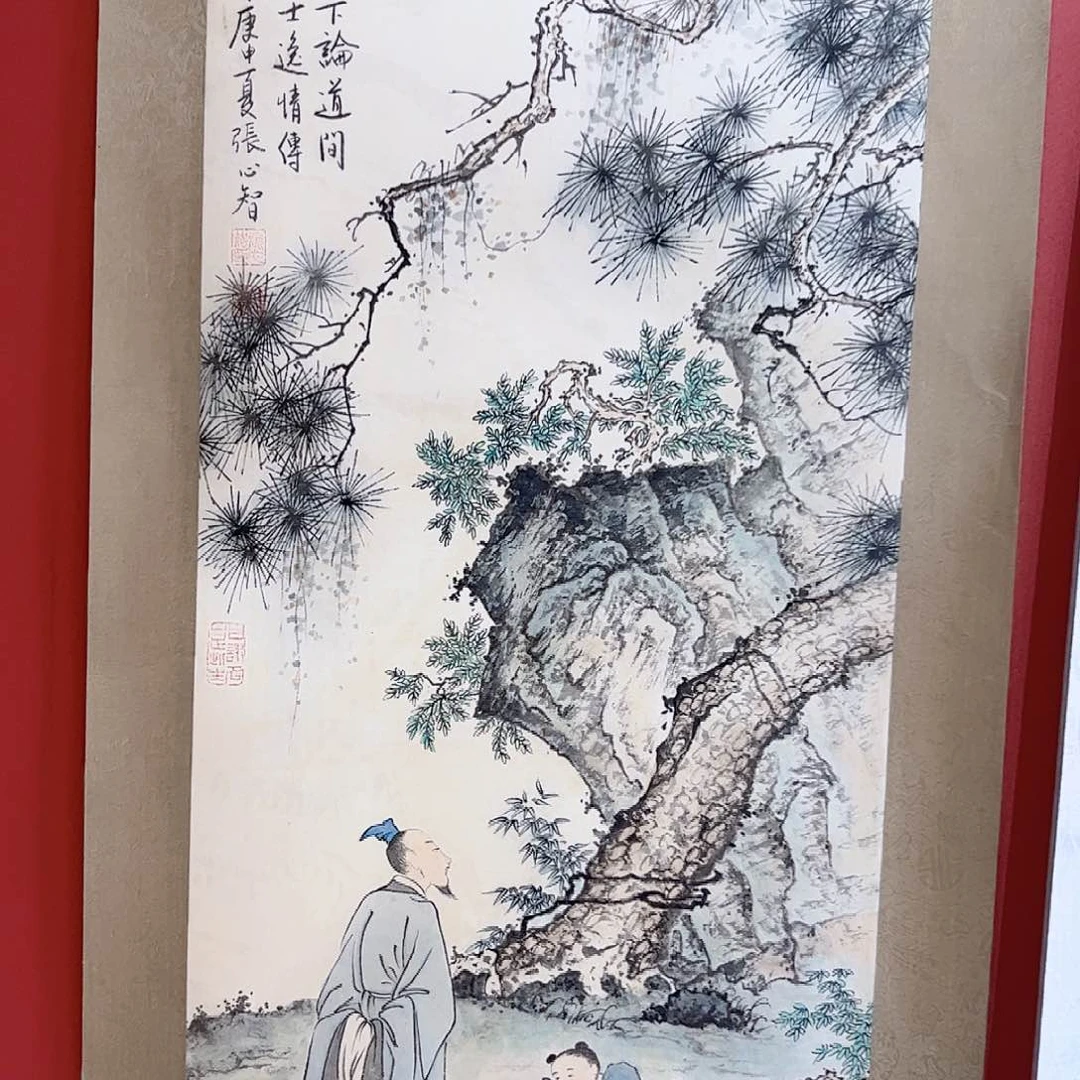 下論道間
士逸情傳
庚申夏張心智